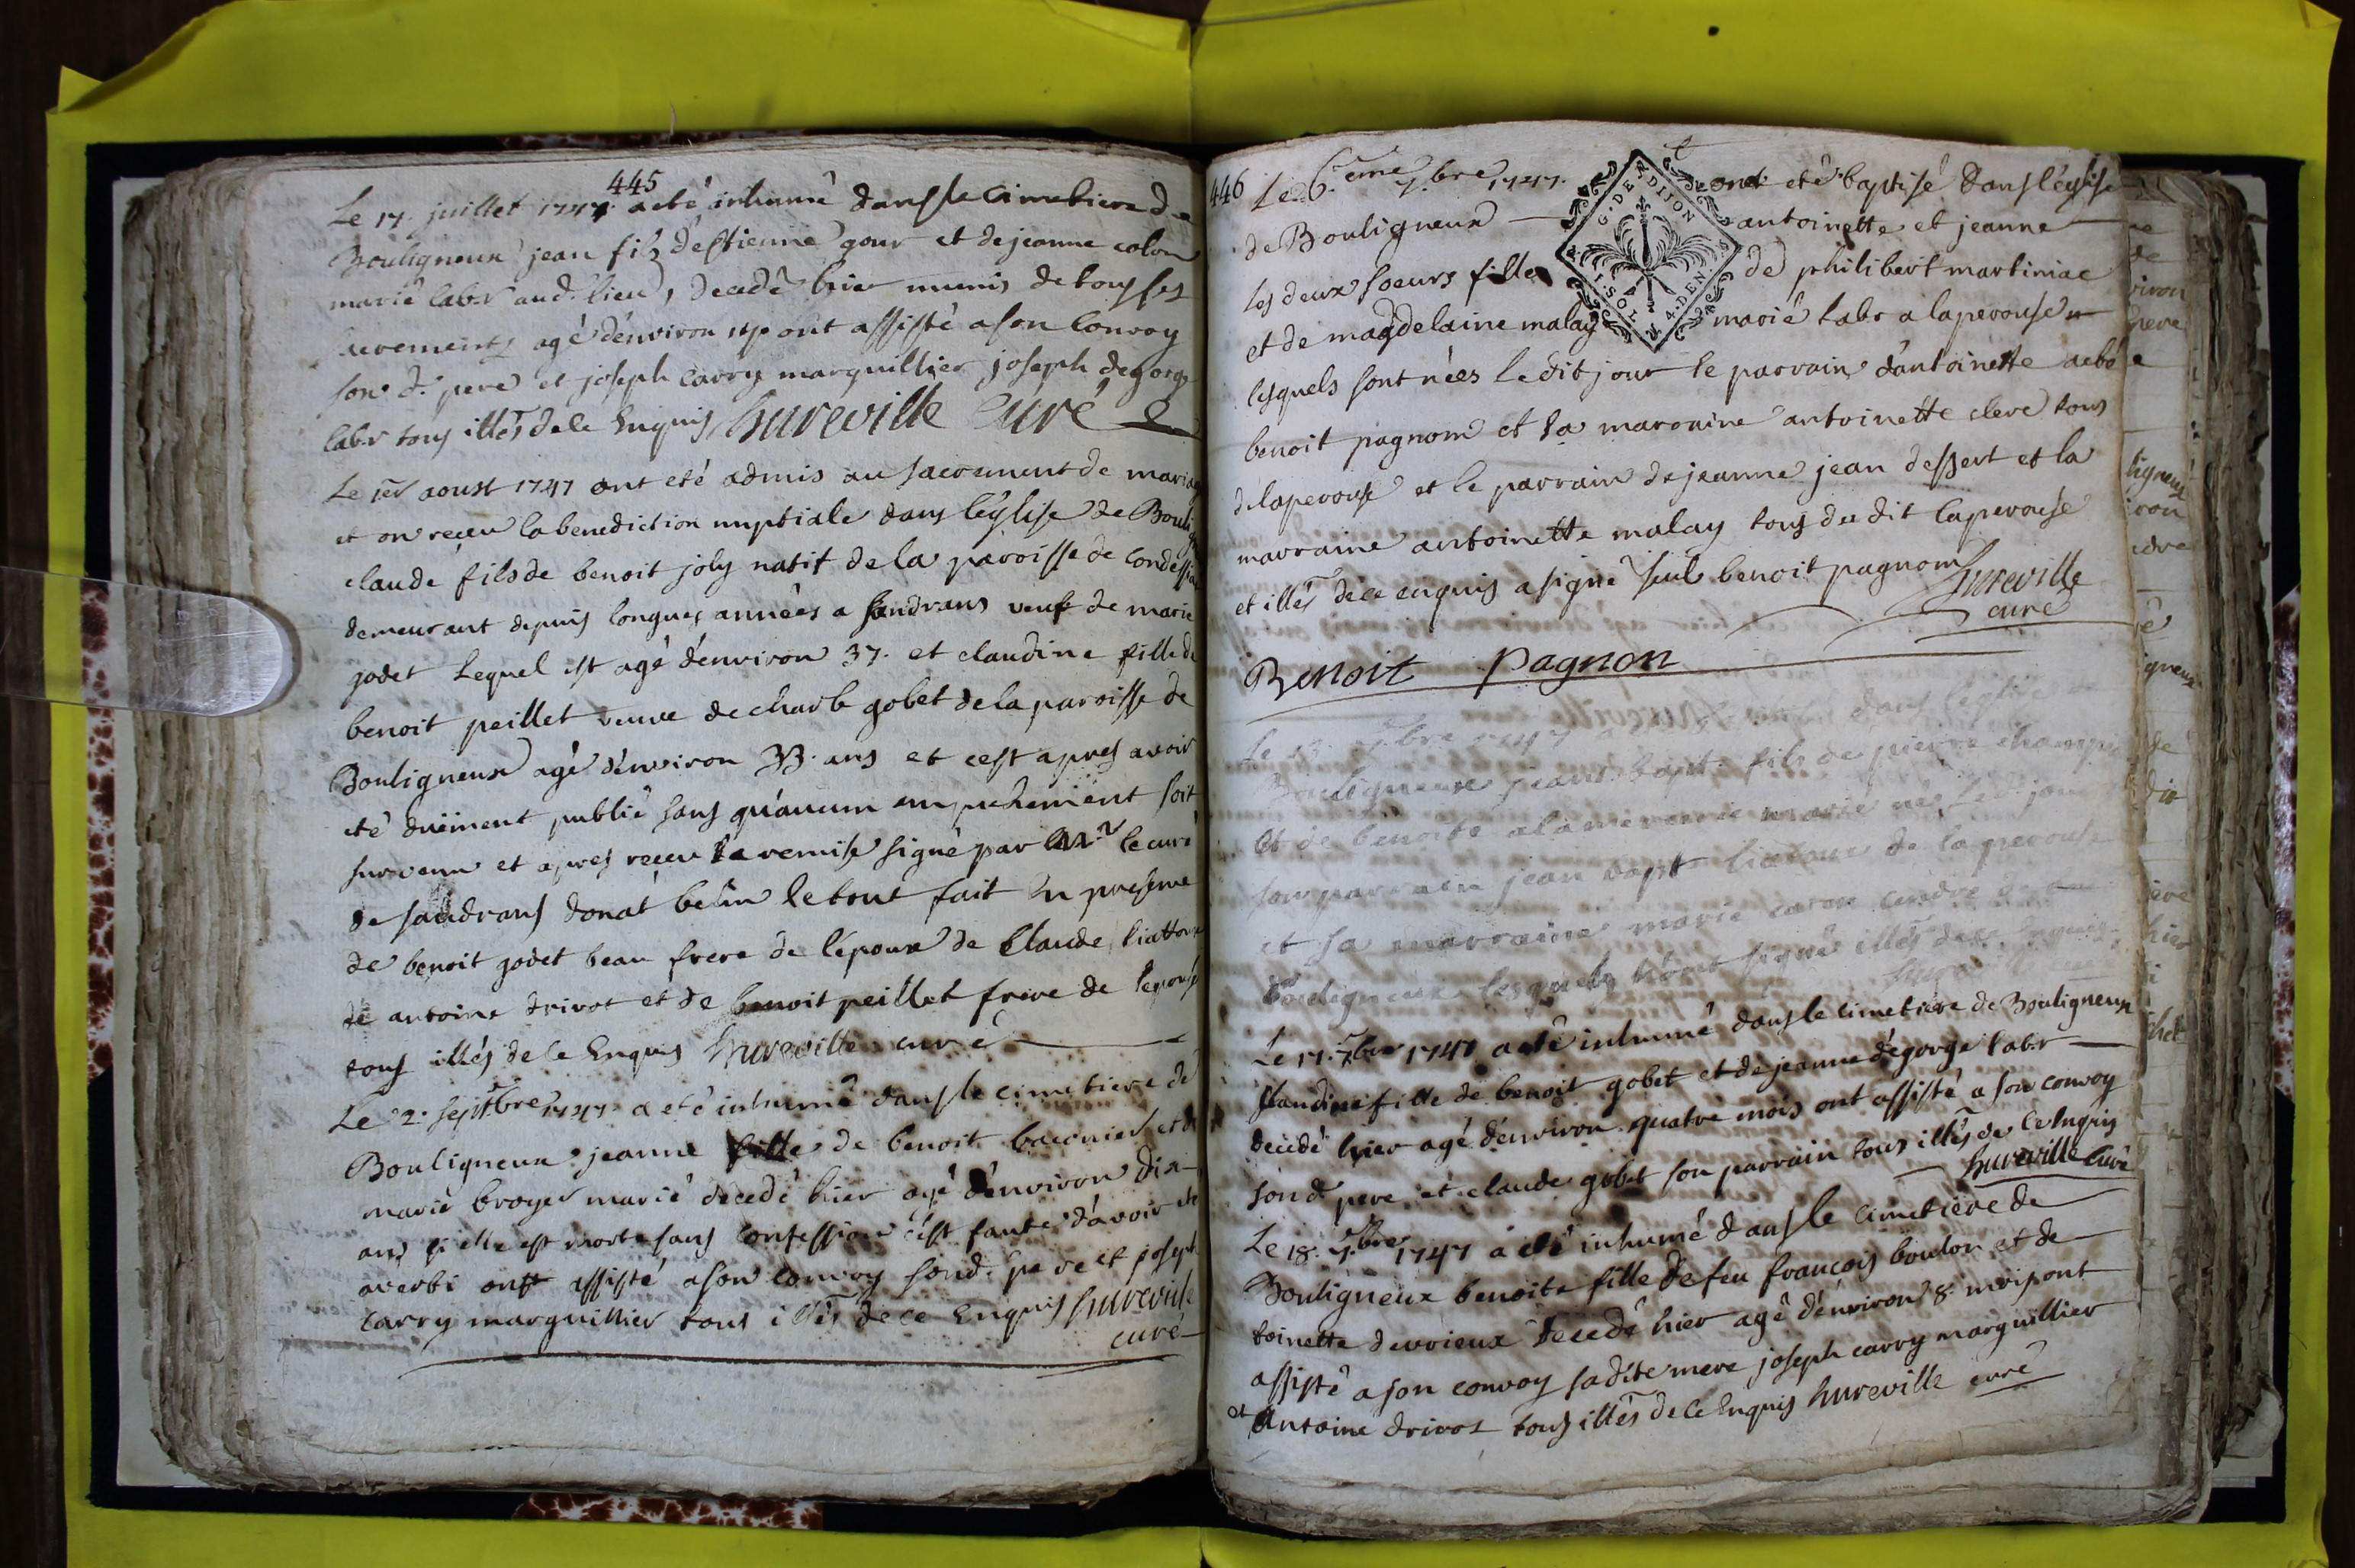 445
Le 17. juillet 1747. a eté inhumé dans le cimetiere de
Bouligneux jean fils d'estienne gour et de jeanne colon
marié labr aud. lieu, decedé hier munis de tous ses
sacrements agé d'environ ont assisté a son Convoy
son d. pere et joseph Carry marguillier joseph degorge
labr tous illés de ce Enquis hureville Curé
Le 1er aoust 1747 ont eté admis au sacrement de mariage
et on receu la benediction nuptiale dans l'église de
claude fils de benoit joly natif de la paroisse de
demeurant depuis longues années a Sandrans veuf de marie
jodet Lequel est agé d'environ 37. et claudine fille de
benoit peillet veuve de charle gobet de la paroisse de
Bouligneux agé d'environ 33. ans et cest apres avoir
eté duëment publié sans qu'aucun empechement soit
survenu et apres receu la remise signé par Mr. le curé
de sandrans donat belin le tout fait En presence
de benoit jodet beau frere de l'epoux de Claude
de antoine drivot et de benoit peillet frere de l'epouse
tous illés de ce Enquis hureville curé
Le 2. septbre 1747. a eté inhumé dans le cimetiere de
Bouligneux jeanne fille de benoit baconier et de
marie broyer marié decedé hier agé d'environ dix
ans si elle est morte sans Confession c'est faute d'avoir eté
averti ont assisté a son convoy sond. pere et joseph
Carry marguillier tous illés de ce Enquis hureville
curé
446 Le 6.eme 7.bre 1747. ont eté baptisé dans l'église
de Bouligneux antoinette et jeanne
les deux soeurs filles de philibert martiniac
et de magdelaine malay marié labr a laperouse
lesquels sont nées Ledit jour le parrain d'antoinette a eté
benoit pagnom et la marraine antoinette clerc tous
de laperouse et le parrain de jeanne jean dessert et la
marraine antoinette malay tous du dit laperouse
et illés de ce enquis a signé seul benoit pagnom hureville
curé
Benoit Pagnon
G. DE DIJON
1. SOL 4. DEN.
Le 7bre 1747 dans l'église
Bouligneux jean bapt. fils de pierre
et de benoite marié né Led. jour
son parrain jean bapt de la perouse
et sa marraine marie
Bouligneux lesquels n'ont signé illés de ce Enquis
Le 17. 7bre 1747 a eté inhumé dans le cimetiere de Bouligneux
Claudine fille de benoit gobet et de jeanne dégorge labr
decedé hier agé d'environ quatre mois ont assisté a son convoy
son d. pere et claude gobet son parrain tous illés de ce Enquis
hureville Curé
Le 18. 7.bre 1747 a eté inhumé dans le cimetiere de
Bouligneux benoite fille de feu françois boulon et de
toinette devrieux decedé hier agé d'environ 8. mois ont
assisté a son convoy sa dite mere joseph carry marguillier
et Antoine drivot tous illés de ce Enquis hureville curé